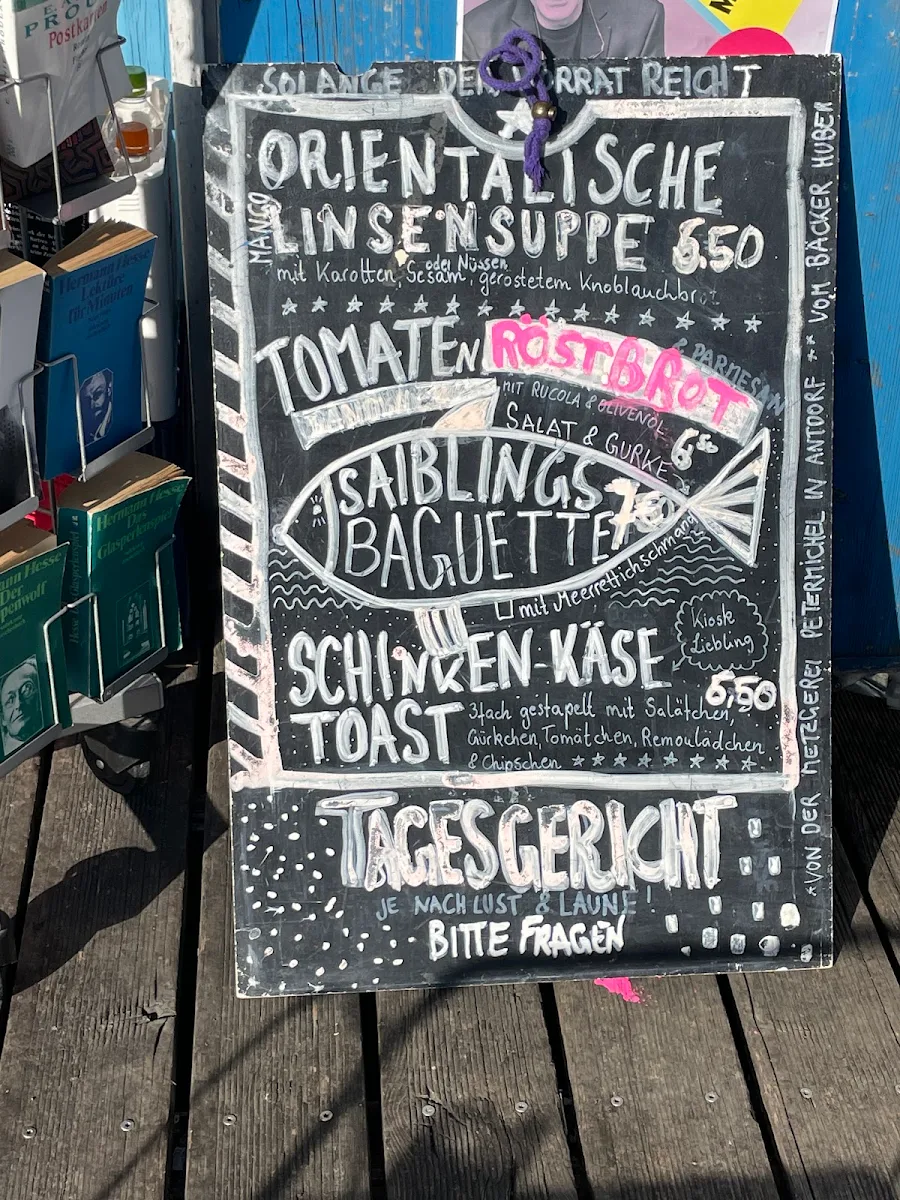 SOLANGE DER VORRAT REICHT
ORIENTALISCHE
MANGO
LINSENSUPPE 6.50
oder Nüssen
mit Karotten, Sesam, geröstetem Knoblauchbrot
TOMATEN RÖSTBROT
& PARMESAN
MIT RUCOLA & OLIVENÖL
SALAT & GURKE
SAIBLINGS
BAGUETTE
mit Meerrettichschmand
Kiosk
Liebling
SCHINKEN-KÄSE
6,50
TOAST
3fach gestapelt mit Salätchen,
Gürkchen, Tomätchen, Remoulädchen
& Chipschen
TAGESGERICHT
JE NACH LUST & LAUNE!
BITTE FRAGEN
*VON DER METZGEREI PETERMICHEL IN ANTDORF ** VOM BÄCKER HUBER
Postkarten
Hermann Hesse
Lektüre
für Minuten
Hermann Hesse
Das
Glasperlenspiel
Hesse
Der